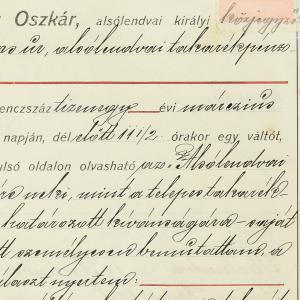 Oszkár, alsólendvai királyi közjegyző
úr, alsólendvai takarékpénz
enczszáz tizenegy évi márczius
napján, dél előtt 11 1/2 órakor egy váltót,
ulsó oldalon olvasható az "Alsólendvai
neki, mint a telepes takarék-
határozott kívánságára - saját
személyesen bemutattam, a
választ nyertem: